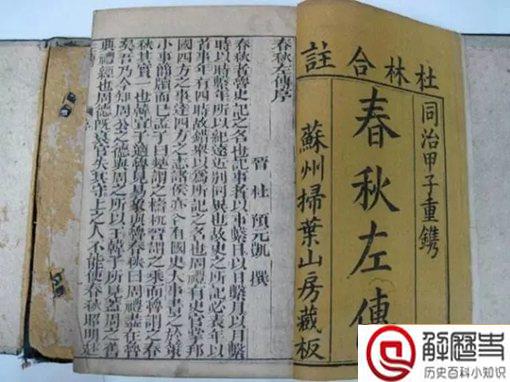 杜林合註
同治甲子重鐫
春秋左傳
蘇州掃葉山房藏板
春秋左傳序
晉 杜 預元凱 撰
春秋者魯史記之名也記事者以事繫日以日繫月以月繫
時以時繫年所以紀遠近別同異也故史之所記必表年以
首事年有四時故錯舉以為所記之名也周禮有史官掌邦
國四方之事達四方之志諸侯亦各有國史大事書之於策
小事簡牘而已孟子曰楚謂之檮杌晉謂之乘而魯謂之春
秋其實一也韓宣子適魯見易象與魯春秋曰周禮盡在魯
矣吾乃今知周公之德與周之所以王韓子所見蓋周之舊
典禮經也周德既衰官失其守上之人不能使春秋昭明
解歷史
历史百科小知识